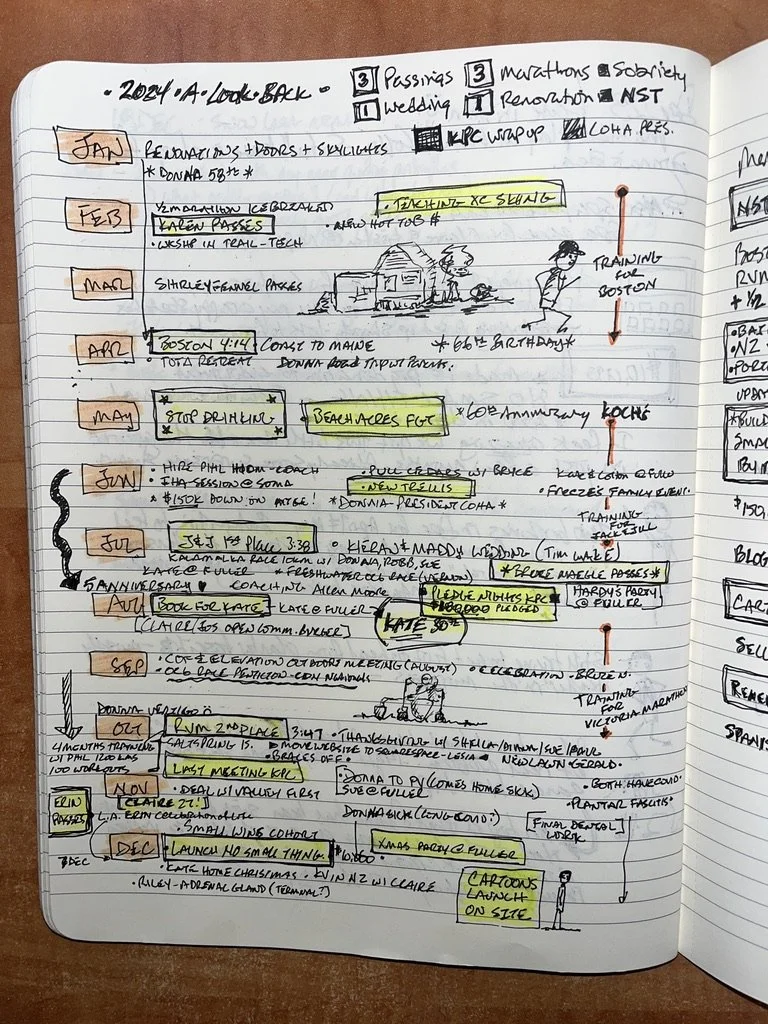 • 2024 • A • LOOK • BACK •
3 Passings 3 Marathons ■ Sobriety
1 Wedding 1 Renovation ■ NST
KPC WRAP UP COHA PRES.
JAN RENOVATIONS + DOORS + SKYLIGHTS
* DONNA 58TH *
FEB 1/2 MARATHON ICEBREAKER • TEACHING XC SKIING
KAREN PASSES • NEW HOT TUB $
• WKSHP IN TRAIL-TECH
MAR SHIRLEY FENNEL PASSES
TRAINING
FOR
BOSTON
APR BOSTON 4:14 COAST TO MAINE * 66TH BIRTHDAY *
RETREAT DONNA
MAY STOP DRINKING BEACH ACRES FGT * 60TH ANNIVERSARY KOCHÉ
JUN • HIRE PHIL • COACH • PULL CEDARS W/ BRYCE @ FULLER
• IHA SESSION @ SOMA • NEW TRELLIS • FREEZE'S FAMILY EVENT.
• $150K DOWN ON MTGE! * DONNA - PRESIDENT COHA *
TRAINING
FOR
JACK & JILL
JUL J&J 1ST PLACE 3:38 • KIERAN & MADDY WEDDING (TIM WAKE)
KALAMALKA RACE 10KM W/ DONNA, ROBB, SUE
KATE @ FULLER * FRESHWATER OC6 RACE (VERNON) * BRUCE MARGIE PASSES *
5 ANNIVERSARY ♥ COACHING ALLEN MOORE
AUG BOOK FOR KATE KATE @ FULLER PLEDGE NIGHTS KPC HARDY'S PARTY
PLEDGED @ FULLER
[CLAIRE/JOS OPEN COMM. BURGER] KATE 30TH
SEP • ELEVATION OUTDOORS MEETING (AUGUST) • CELEBRATION •
• OC6 RACE PENTICTON - CDN NATIONALS
TRAINING
FOR
VICTORIA MARATHON
DONNA VERTIGO
OCT RVM 2ND PLACE 3:47 • THANKSGIVING W/ SHEILA/DIANA/SUE/PAUL
4 MONTHS TRAINING SALTSPRING IS. ▶ MOVE WEBSITE TO SQUARESPACE - LESIA • NEW LAWN - GERALD.
W/ PHIL 1200 KMS • BRACES OFF •
100 WORKOUTS LAST MEETING KPC
• DONNA TO PV (COMES HOME SICK) • BOTH HAVE COVID.
NOV • DEAL W/ VALLEY FIRST SUE @ FULLER • PLANTAR FASCITIS
CLAIRE 27!
ERIN
PASSES L.A. ERIN CELEBRATION OF LIFE DONNA SICK (LONG COVID?) [FINAL DENTAL
WORK]
• SMALL WINS COHORT
DEC LAUNCH NO SMALL THING $10,000 XMAS PARTY @ FULLER
3 DEC
• KATE HOME CHRISTMAS • KV IN NZ W/ CLAIRE
• RILEY - ADRENAL GLAND (TERMINAL?)
CARTOONS
LAUNCH
ON SITE
NST
BOST
RUN
+ 1/2
• NZ
• PORT
UPDA
BUILD
SMAL
$150,
BLOG
CART
SELL
REME
SPANIS